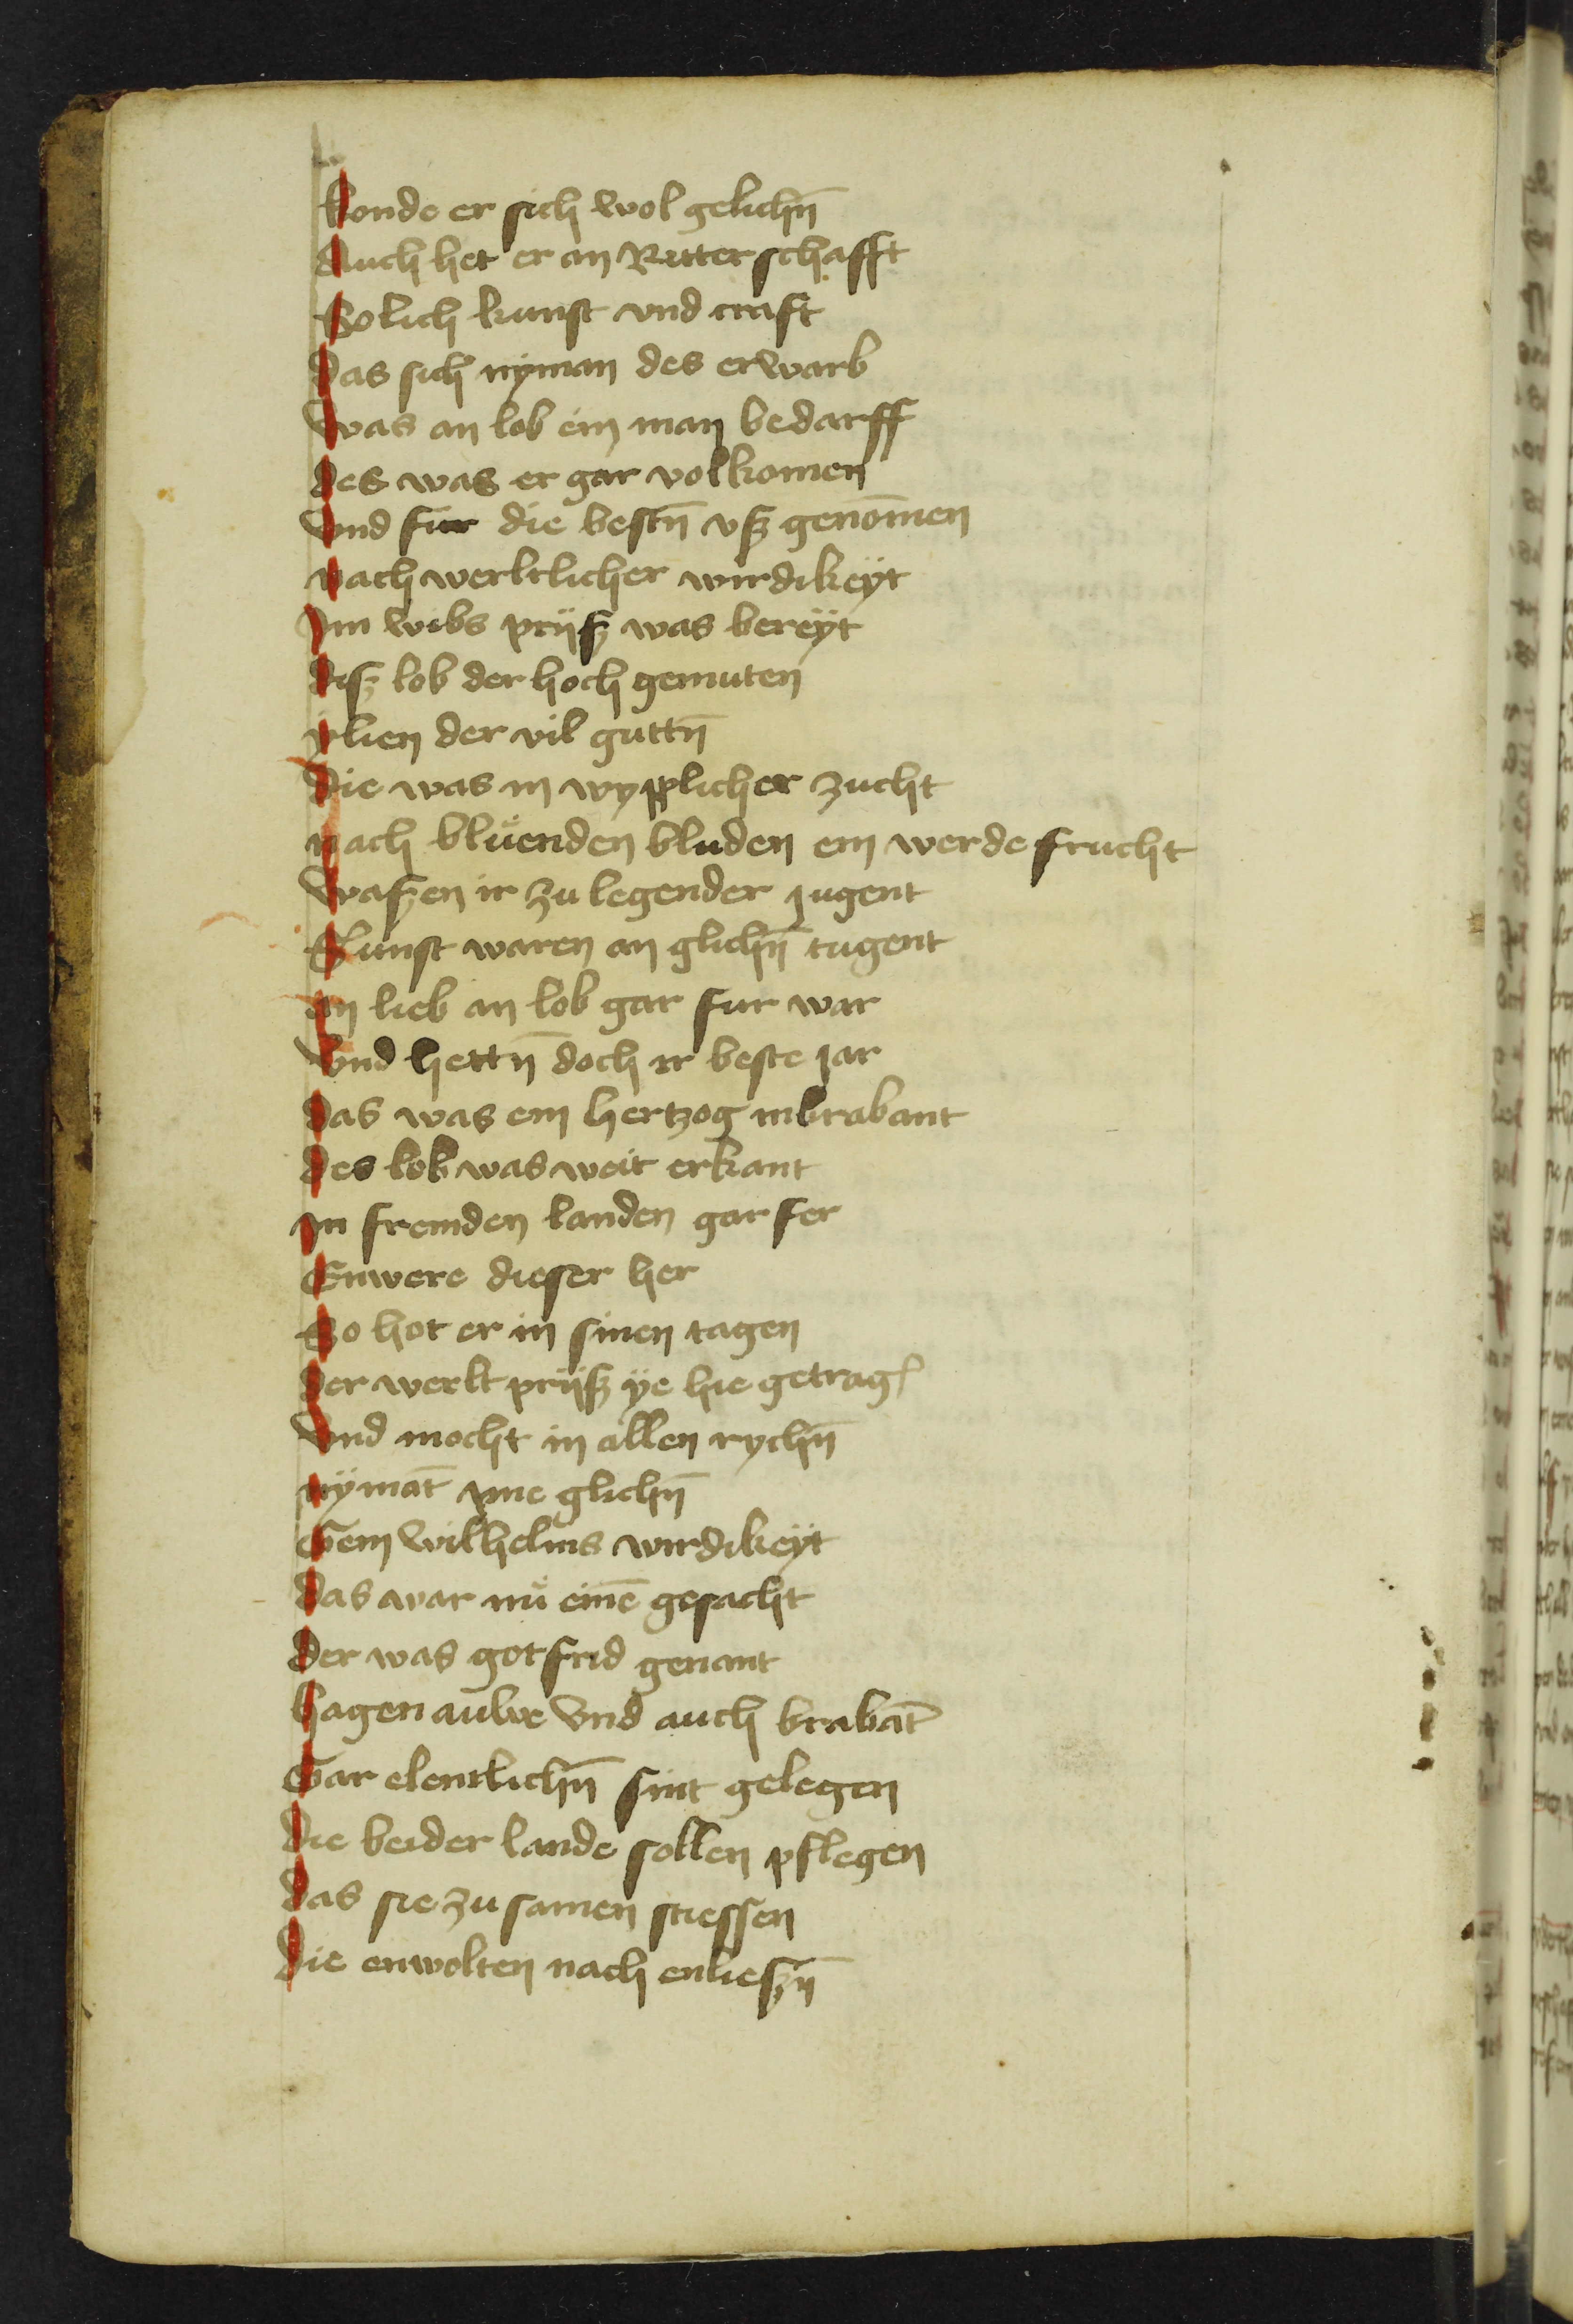 Konde er sich wol gelichn̄
Auch het er an Ritterschafft
Solich kunst vnd craft
Das sich nÿman des erwarb
Was an lob ein man bedarff
Des was er gar volkomen
Vnd fur die bestn̄ vsz genom̄en
Nach werltlicher wirdikeÿt
Im wibs prijsz was bereÿt
Disz lob der hoch gemuten
ÿlien der vil guttn̄
Die was in wypplicher zucht
Nach blůenden bluden ein werde frucht
Waszen ir zu legender jugent
Sunst waren an glichn̄ tugent
An lieb an lob gar fur war
Vnd hettn̄ doch ir beste jar
Das was ein hertzog in brabant
Des lob was weit erkant
In fremden landen gar fer
Enwere dieser her
So hot er in sinen tagen
Der werlt prijsz ÿe hie getrag
Vnd mocht in allen rychn̄
Nÿmāt yme glichn̄
Gein wilhelms wirdikeÿt
Das war nů einē gesacht
Der was gotfrid genant
Hagenauwe vnd auch brabāt
Gar elentlichn̄ sint gelegen
Die beider lande sollen pflegen
Das sie zu samen stiessen
Die enwolten nach enlieszn̄